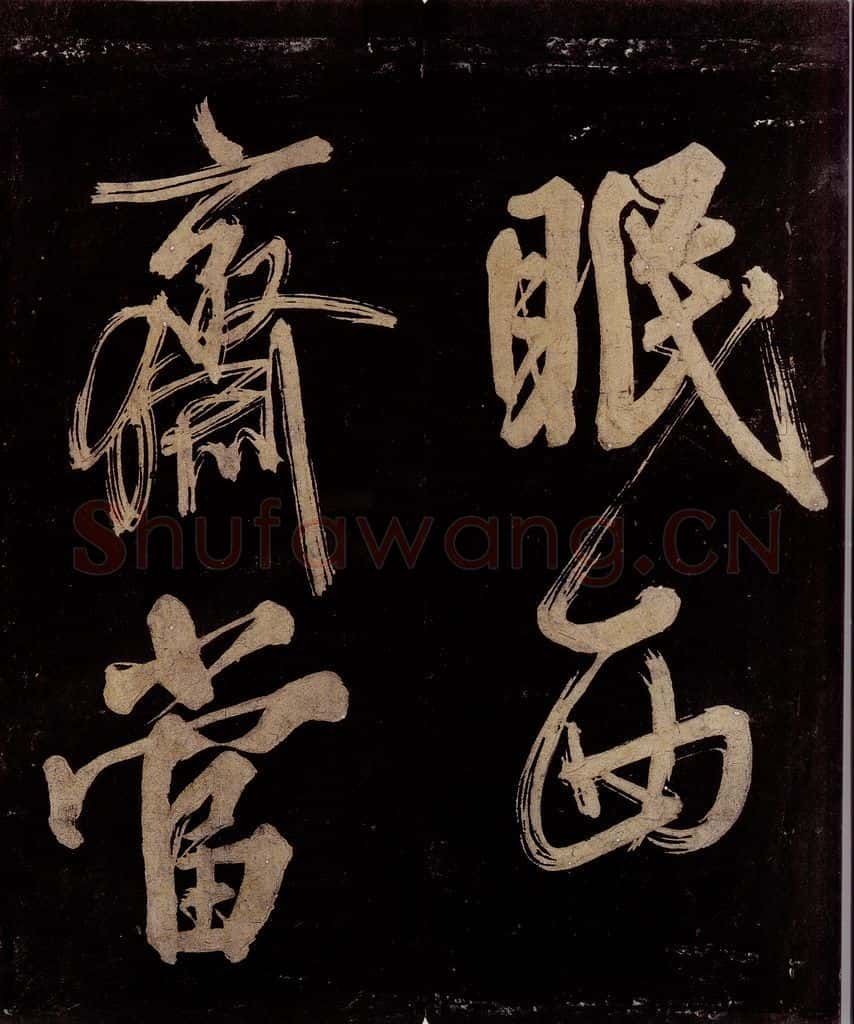 眠西
齋當
Shufawang.CN